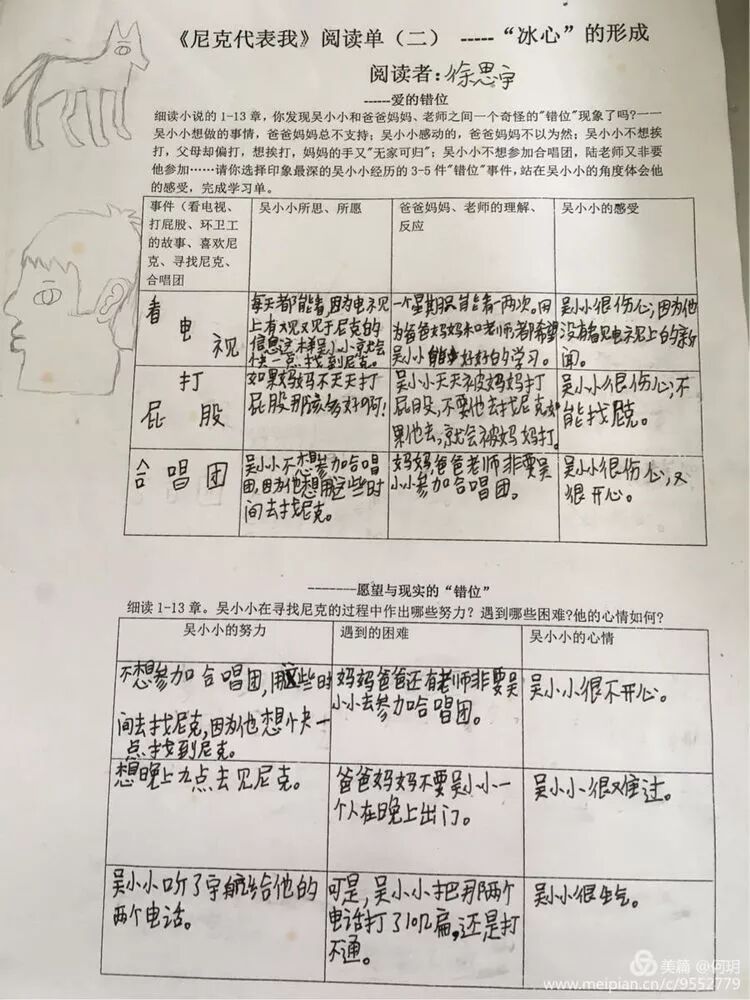 《尼克代表我》阅读单（二） -----“冰心”的形成
阅读者：徐思宇
------爱的错位
细读小说的1-13章，你发现吴小小和爸爸妈妈、老师之间一个奇怪的"错位"现象了吗?——
吴小小想做的事情，爸爸妈妈总不支持；吴小小感动的，爸爸妈妈不以为然；吴小小不想挨
打，父母却偏打，想挨打，妈妈的手又"无家可归"；吴小小不想参加合唱团，陆老师又非要
他参加……请你选择印象最深的吴小小经历的3-5件"错位"事件，站在吴小小的角度体会他
的感受，完成学习单。
事件（看电视、
打屁股、环卫工
的故事、喜欢尼
克、寻找尼克、
合唱团
吴小小所思、所愿
爸爸妈妈、老师的理解、
反应
吴小小的感受
看电视
每天都能看，因为电视
上有大见又见于尼克的
信息这样吴小小就会
快一点找到尼克。
一个星期只能看一两次。因
为爸爸妈妈和老师都希望
吴小小能好好的学习。
吴小小很伤心，因为他
没有看见电视上的新
闻。
打
屁股
如果妈妈不天天打
屁股那该多好啊！
吴小小天天被妈妈打
屁股，不要他去找尼克如
果他去，就会被妈妈打。
吴小小很伤心，不
能找尼克。
合唱团
吴小小不想参加合唱
团，因为他想用这些时
间去找尼克。
妈妈爸爸老师非要吴
小小参加合唱团。
吴小小很伤心，又
很开心。
-------愿望与现实的“错位”
细读1-13章。吴小小在寻找尼克的过程中作出哪些努力？遇到哪些困难?他的心情如何?
吴小小的努力
遇到的困难
吴小小的心情
不想参加合唱团，用这些时
间去找尼克，因为他想快一
点找到尼克。
妈妈爸爸还有老师非要吴
小小去参加合唱团。
吴小小很不开心。
想晚上九点去见尼克。
爸爸妈妈不要吴小小一
个人在晚上出门。
吴小小很难过。
吴小小听了宇航给他的
两个电话。
可是，吴小小把那两个
电话打了10几扁，还是打
不通。
吴小小很生气。
美篇 @何玥
www.meipian.cn/c/9552779